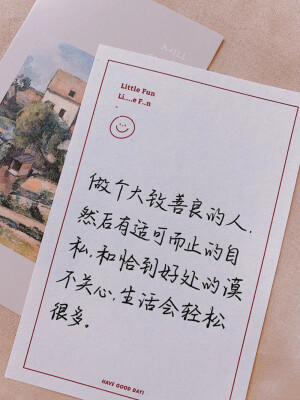 Little Fun
做个大致善良的人,
然后有适可而止的自
私,和恰到好处的漠
不关心,生活会轻松
很多。
HAVE GOOD DAY!